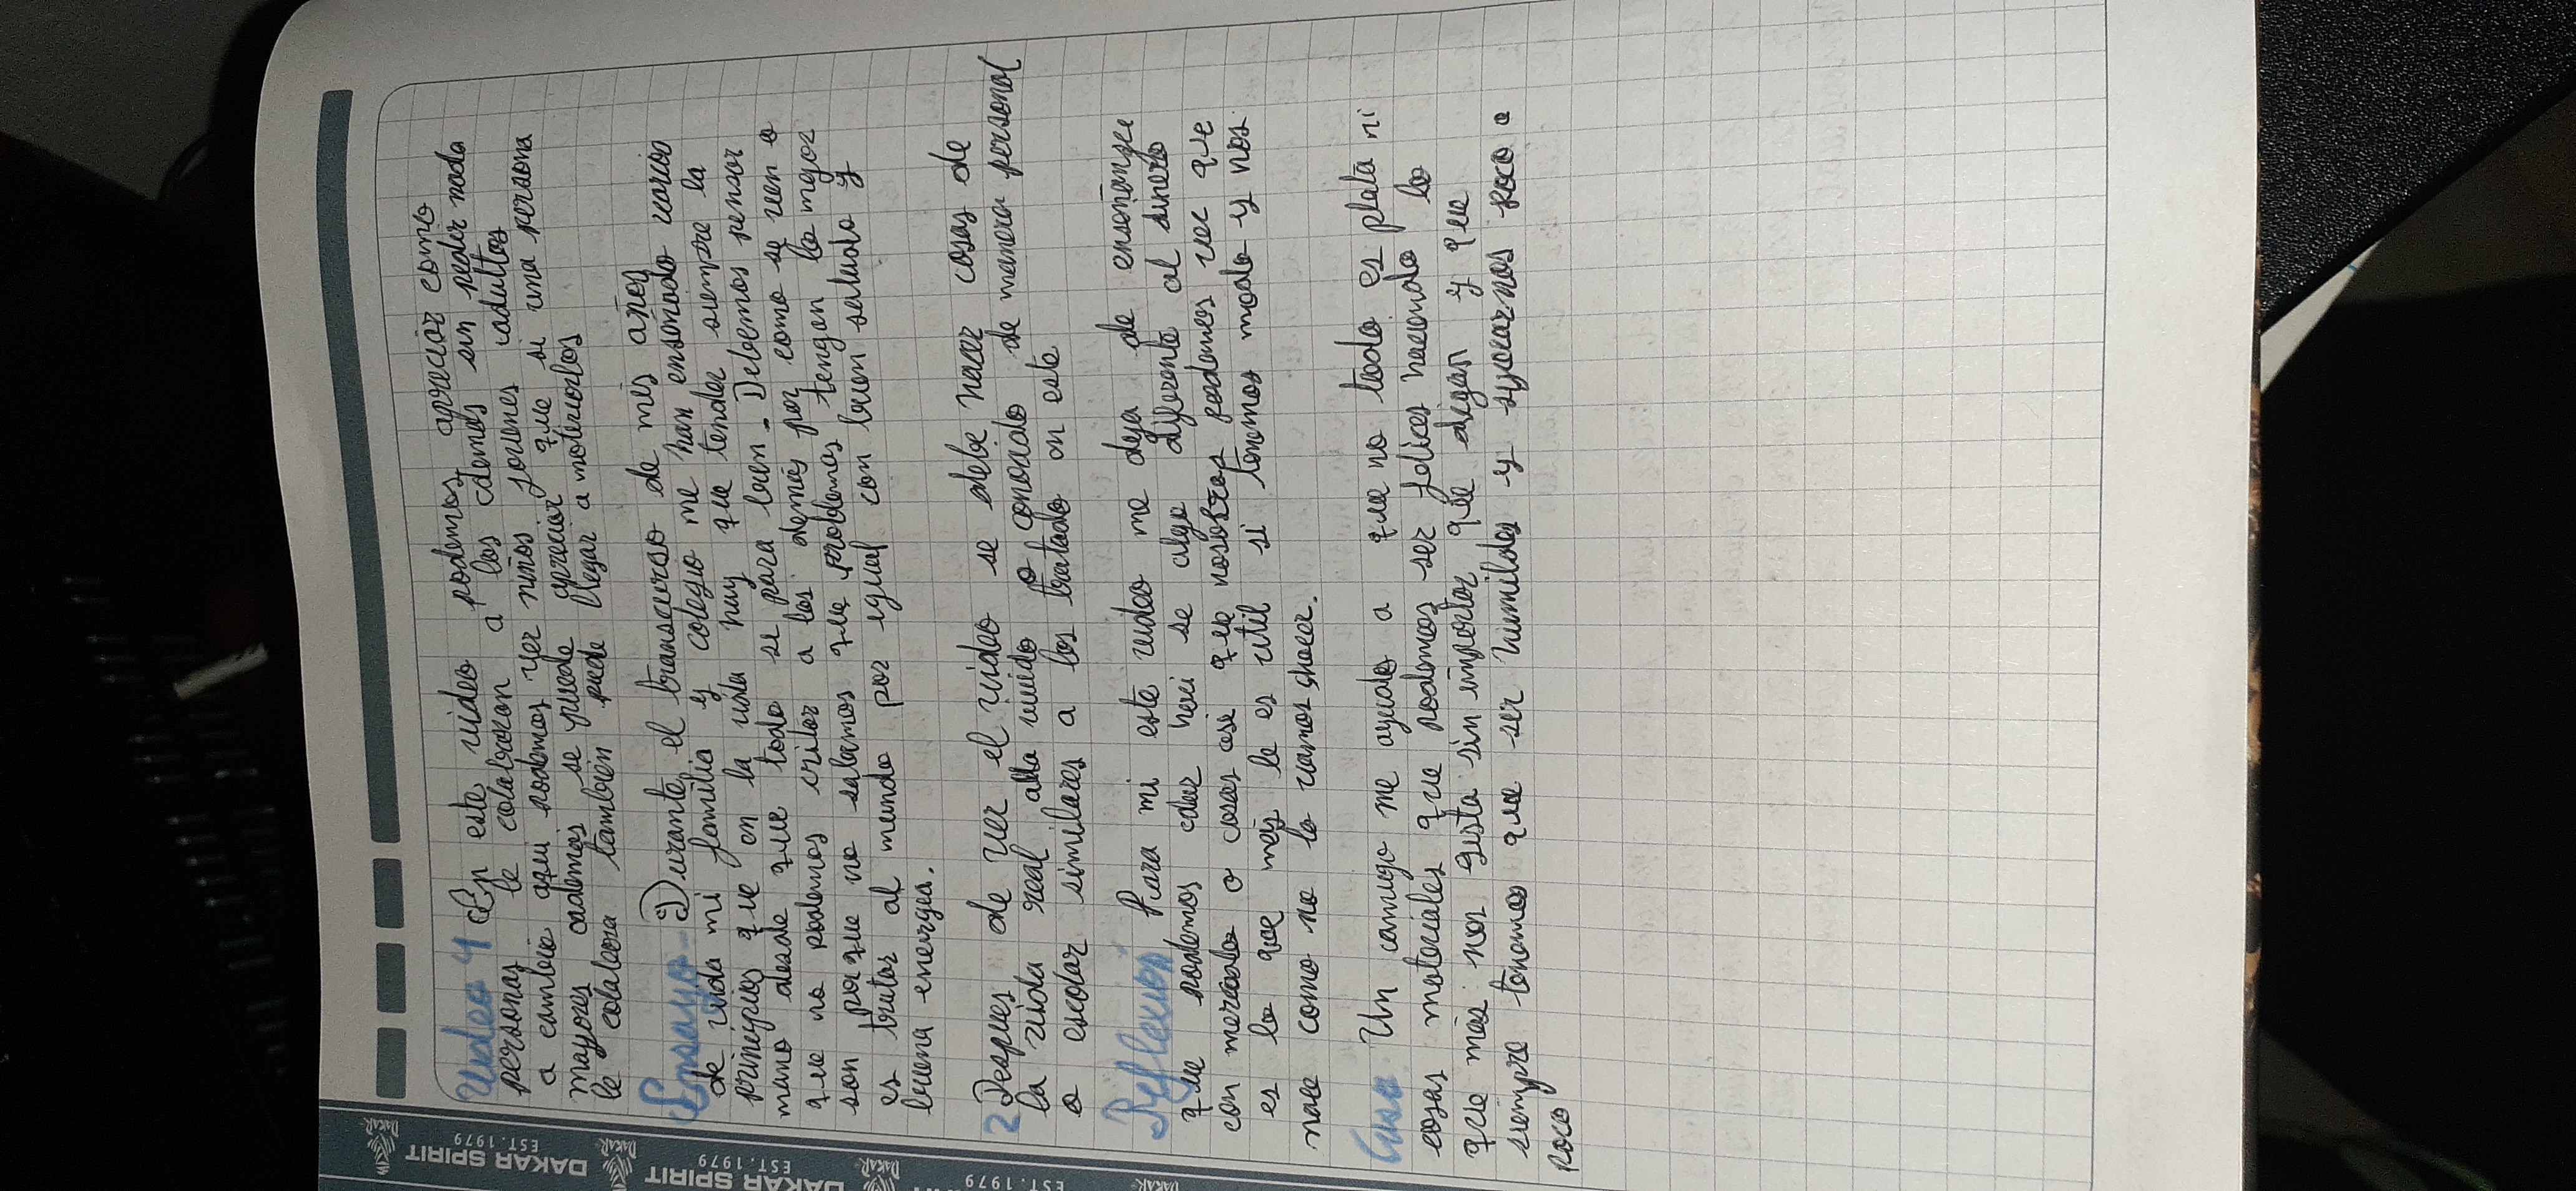 Video 4 En este video podemos apreciar como
personas le colaboran a los demas sin pedir nada
a cambio aqui podemos ver niños jovenes adultos
mayores ademas se puede apreciar que si una persona
le colabora tambien puede llegar a motivarlos
Ensayo - 1) Durante el transcurso de mis años
de vida mi familia y colegio me han enseñado varios
principios que en la vida hay que tender siempre la
mano desde que todo se para bien. Debemos pensar
que no podemos critar a los demás por como se ven o
son porque no sabemos que problemas tengan lo mejor
es tratar al mundo por igual con buen saludo y
buena energia.
2 Despues de ver el video se debe hacer cosas de
la vida real alla vivido o conocido de manera personal
o escolar similares a los tratado en este
Reflexion Para mi este video me deja de enseñanze
que podemos dar haci se algo diferente al dinero
con mercado o cosas asi que nosotros podemos vec que
es lo que más le es util si tenemos modo y nos
nace como no lo vamos ghacer.
Caso Un amigo me ayudo a que no todo es plata ni
cosas materiales que podemos ser felices haciendo lo
que más nos gusta sin importar que digan y que
siempre tenemos que ser humildes y apocarnos poco a
poco
DAKAR SPIRIT
EST.1979
DAKAR
DAKAR SPIRIT
EST.1979
DAKAR
DAKAR SPIRIT
EST.1979
DAKAR